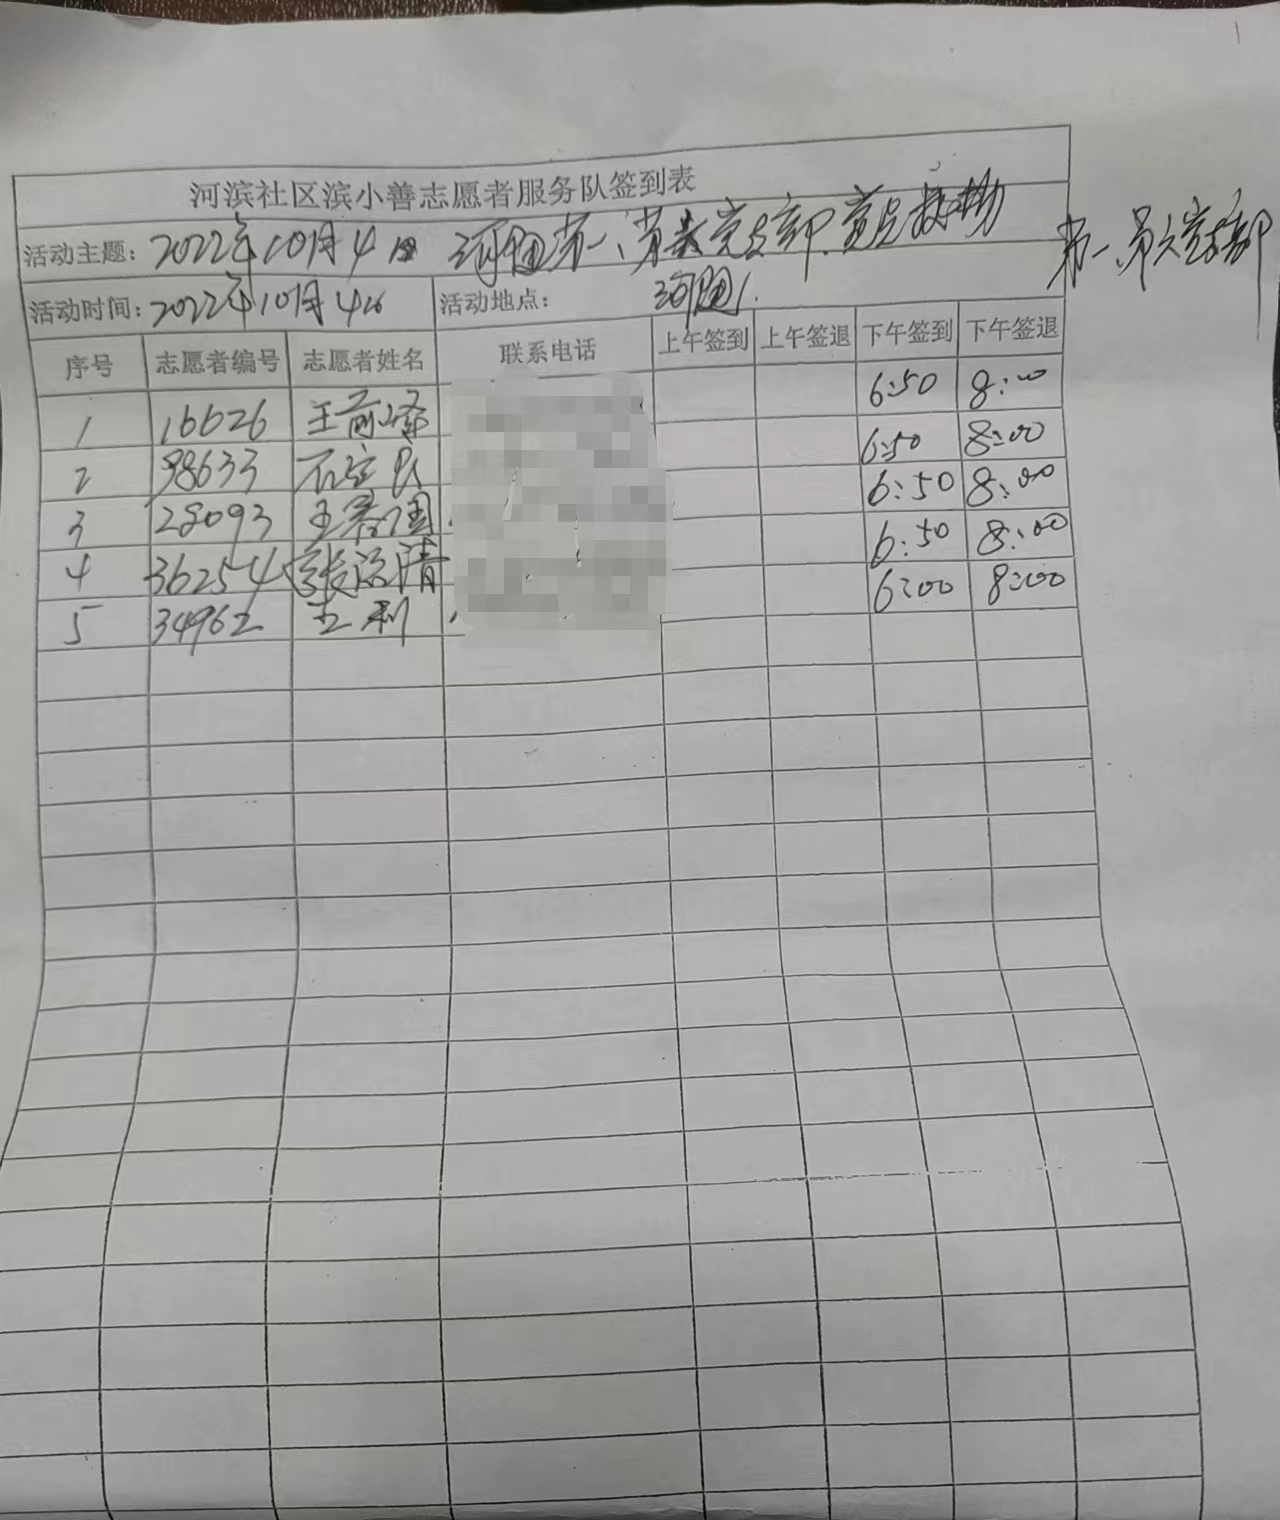 河滨社区滨小善志愿者服务队签到表
活动主题: 2022年10月4日 第一、党支部党员
第一、第六党支部
活动时间: 2022年10月4日 活动地点:
序号 志愿者编号 志愿者姓名 联系电话 上午签到 上午签退 下午签到 下午签退
1 16626 王前峰 6:50 8:00
2 98633 石 6:50 8:00
3 28093 王 6:50 8:00
4 36254 张 清 6:50 8:00
5 34962 王利 6:00 8:00